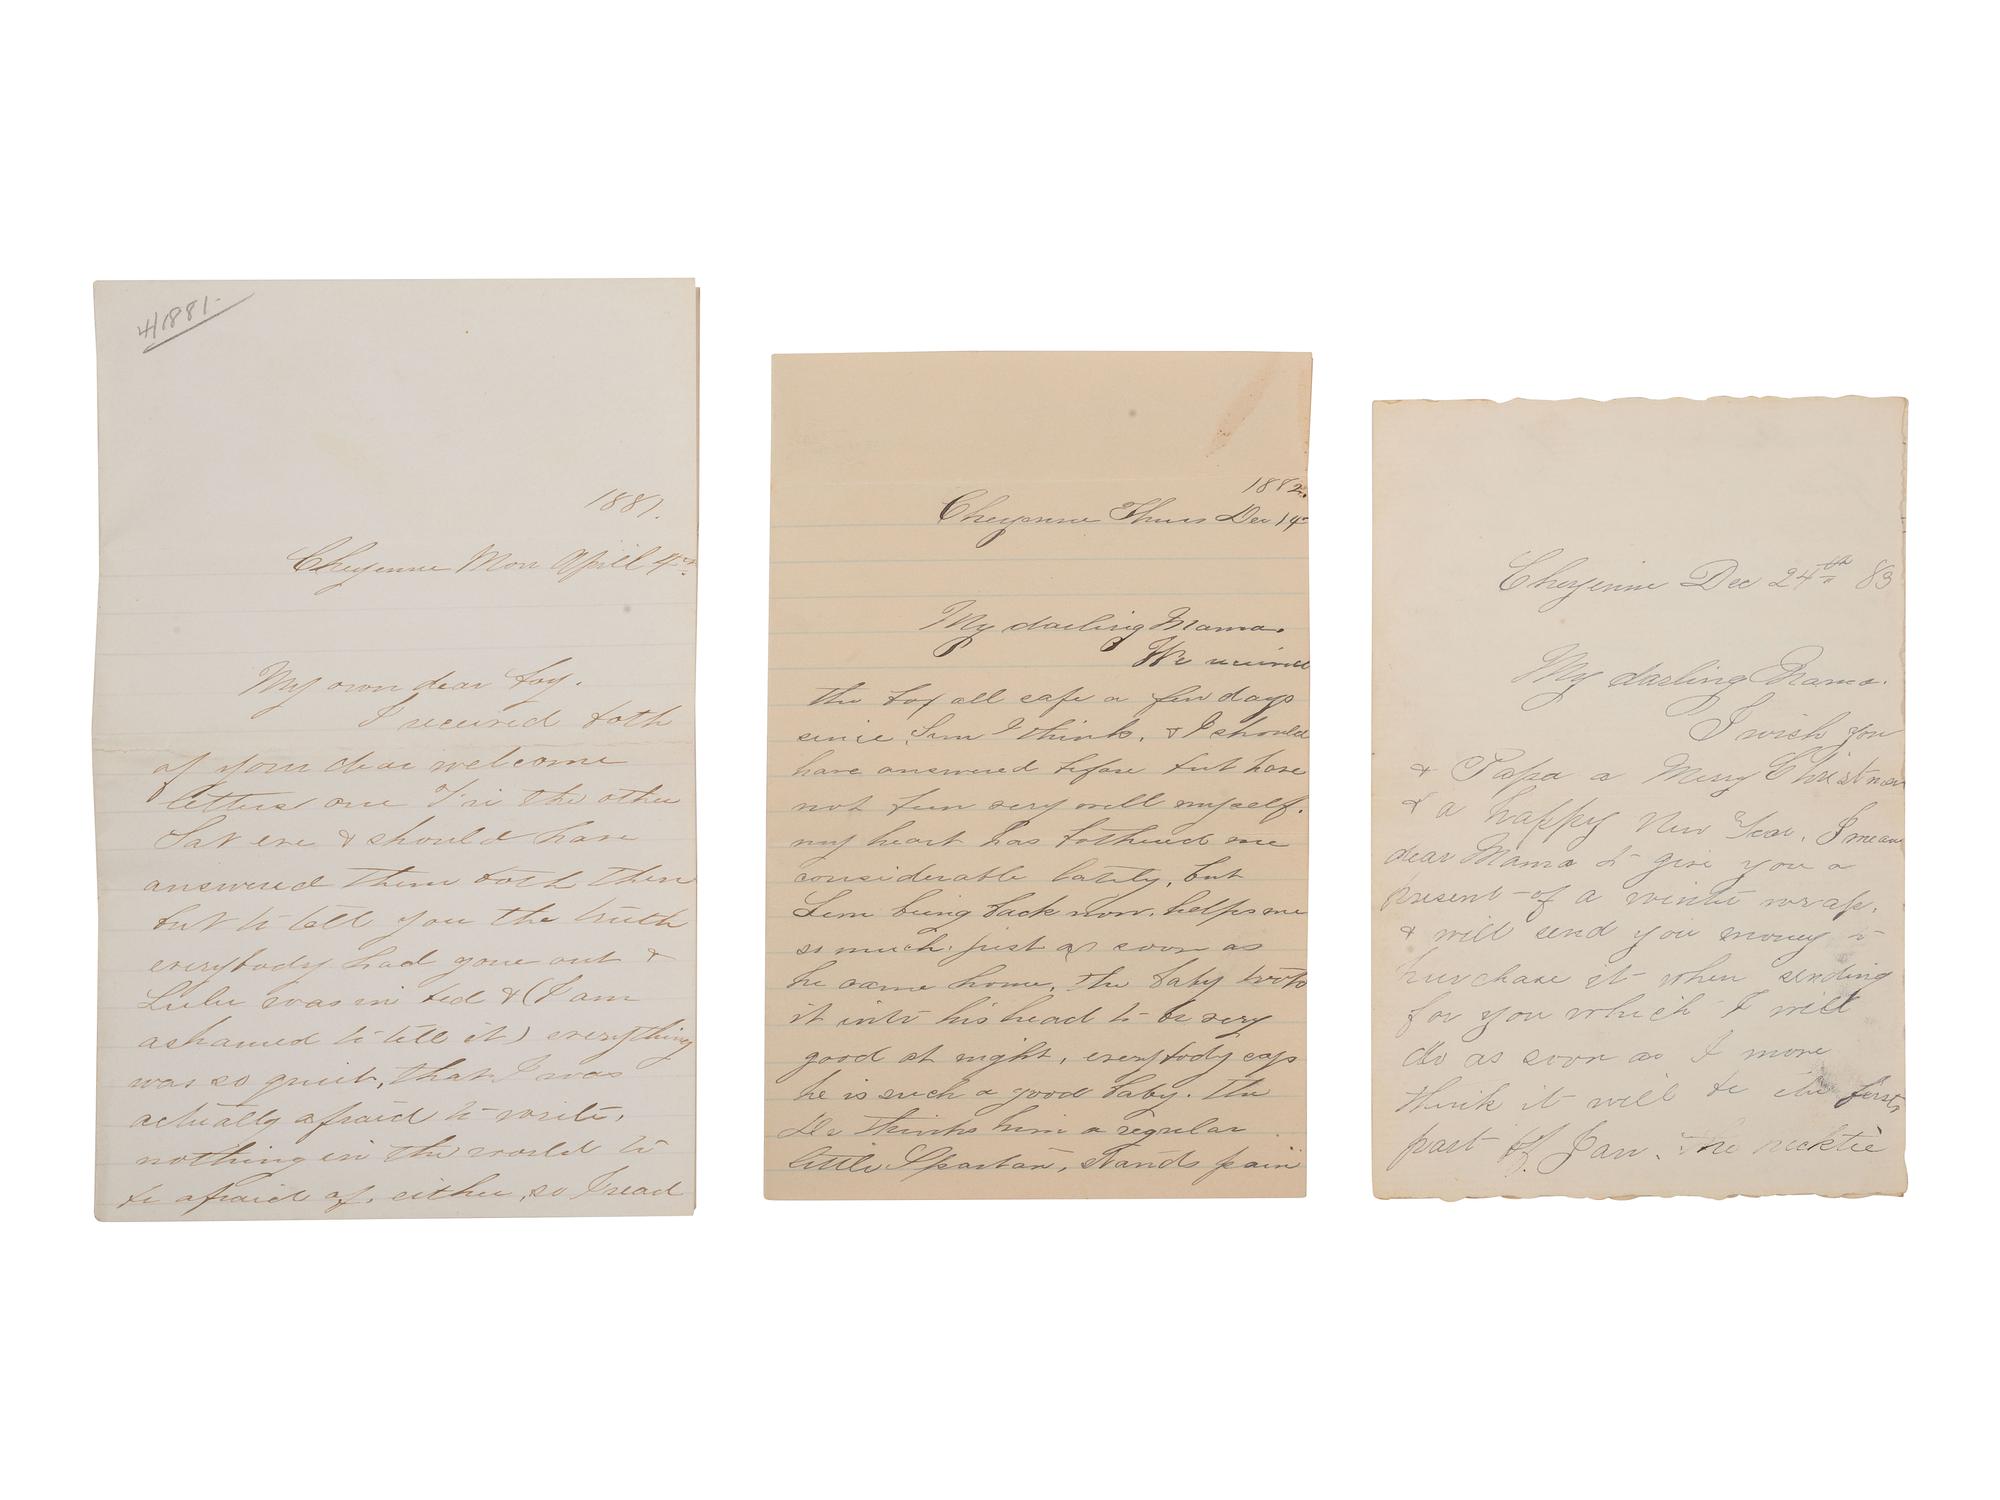 4/1881.
1881.
Cheyenne Mon April 4th
My own dear boy.
I received both
of your dear welcome
letters one Fri the other
Sat eve & should have
answered them both then
but to tell you the truth
everybody had gone out &
Lulu was in bed & (I am
ashamed to tell it) everything
was so quiet, that I was
actually afraid to write,
nothing in the world to
be afraid of, either, so I read
1882.
Cheyenne Thurs Dec 14
My darling Mama.
We received
the box all safe a few days
since, I think, & I should
have answered before but have
not been very well myself.
my heart has bothered me
considerable lately, but
Lem being back now, helps me
so much. just as soon as
he came home, the baby took
it into his head to be very
good at night, everybody says
he is such a good baby. The
Dr thinks him a regular
little Spartan, stands pain
Cheyenne Dec 24th 83
My darling Mama.
I wish you
& Papa a Merry Christmas
& a happy New Year. I mean
dear Mama to give you a
present of a winter wrap,
& will send you money to
purchase it when sending
for you which I will
do as soon as I move
think it will be the first
part of Jan. The necktie